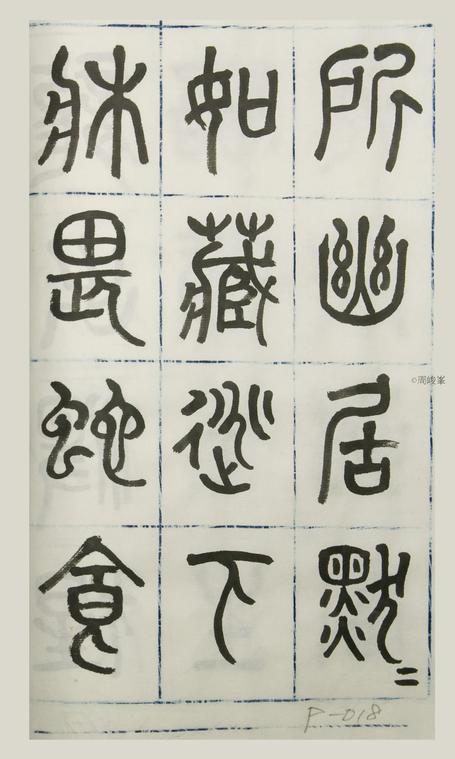 所幽居默二
如藏逃下
牀畏蛇食
©周峻峯
P-018